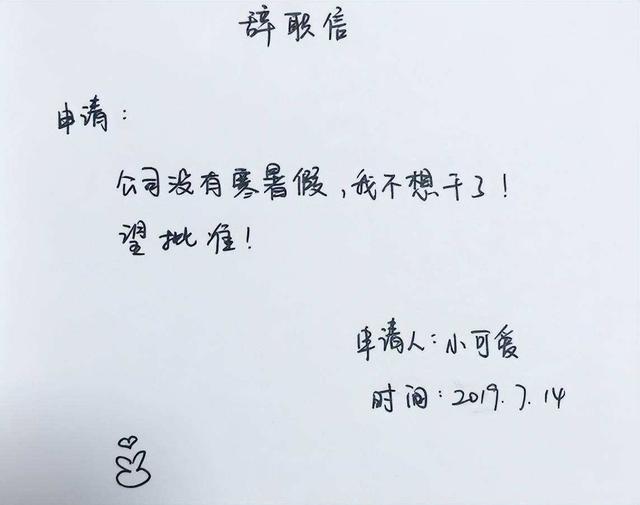 辞职信
申请：
公司没有寒暑假，我不想干了！
望批准！
申请人：小可爱
时间：2019.7.14